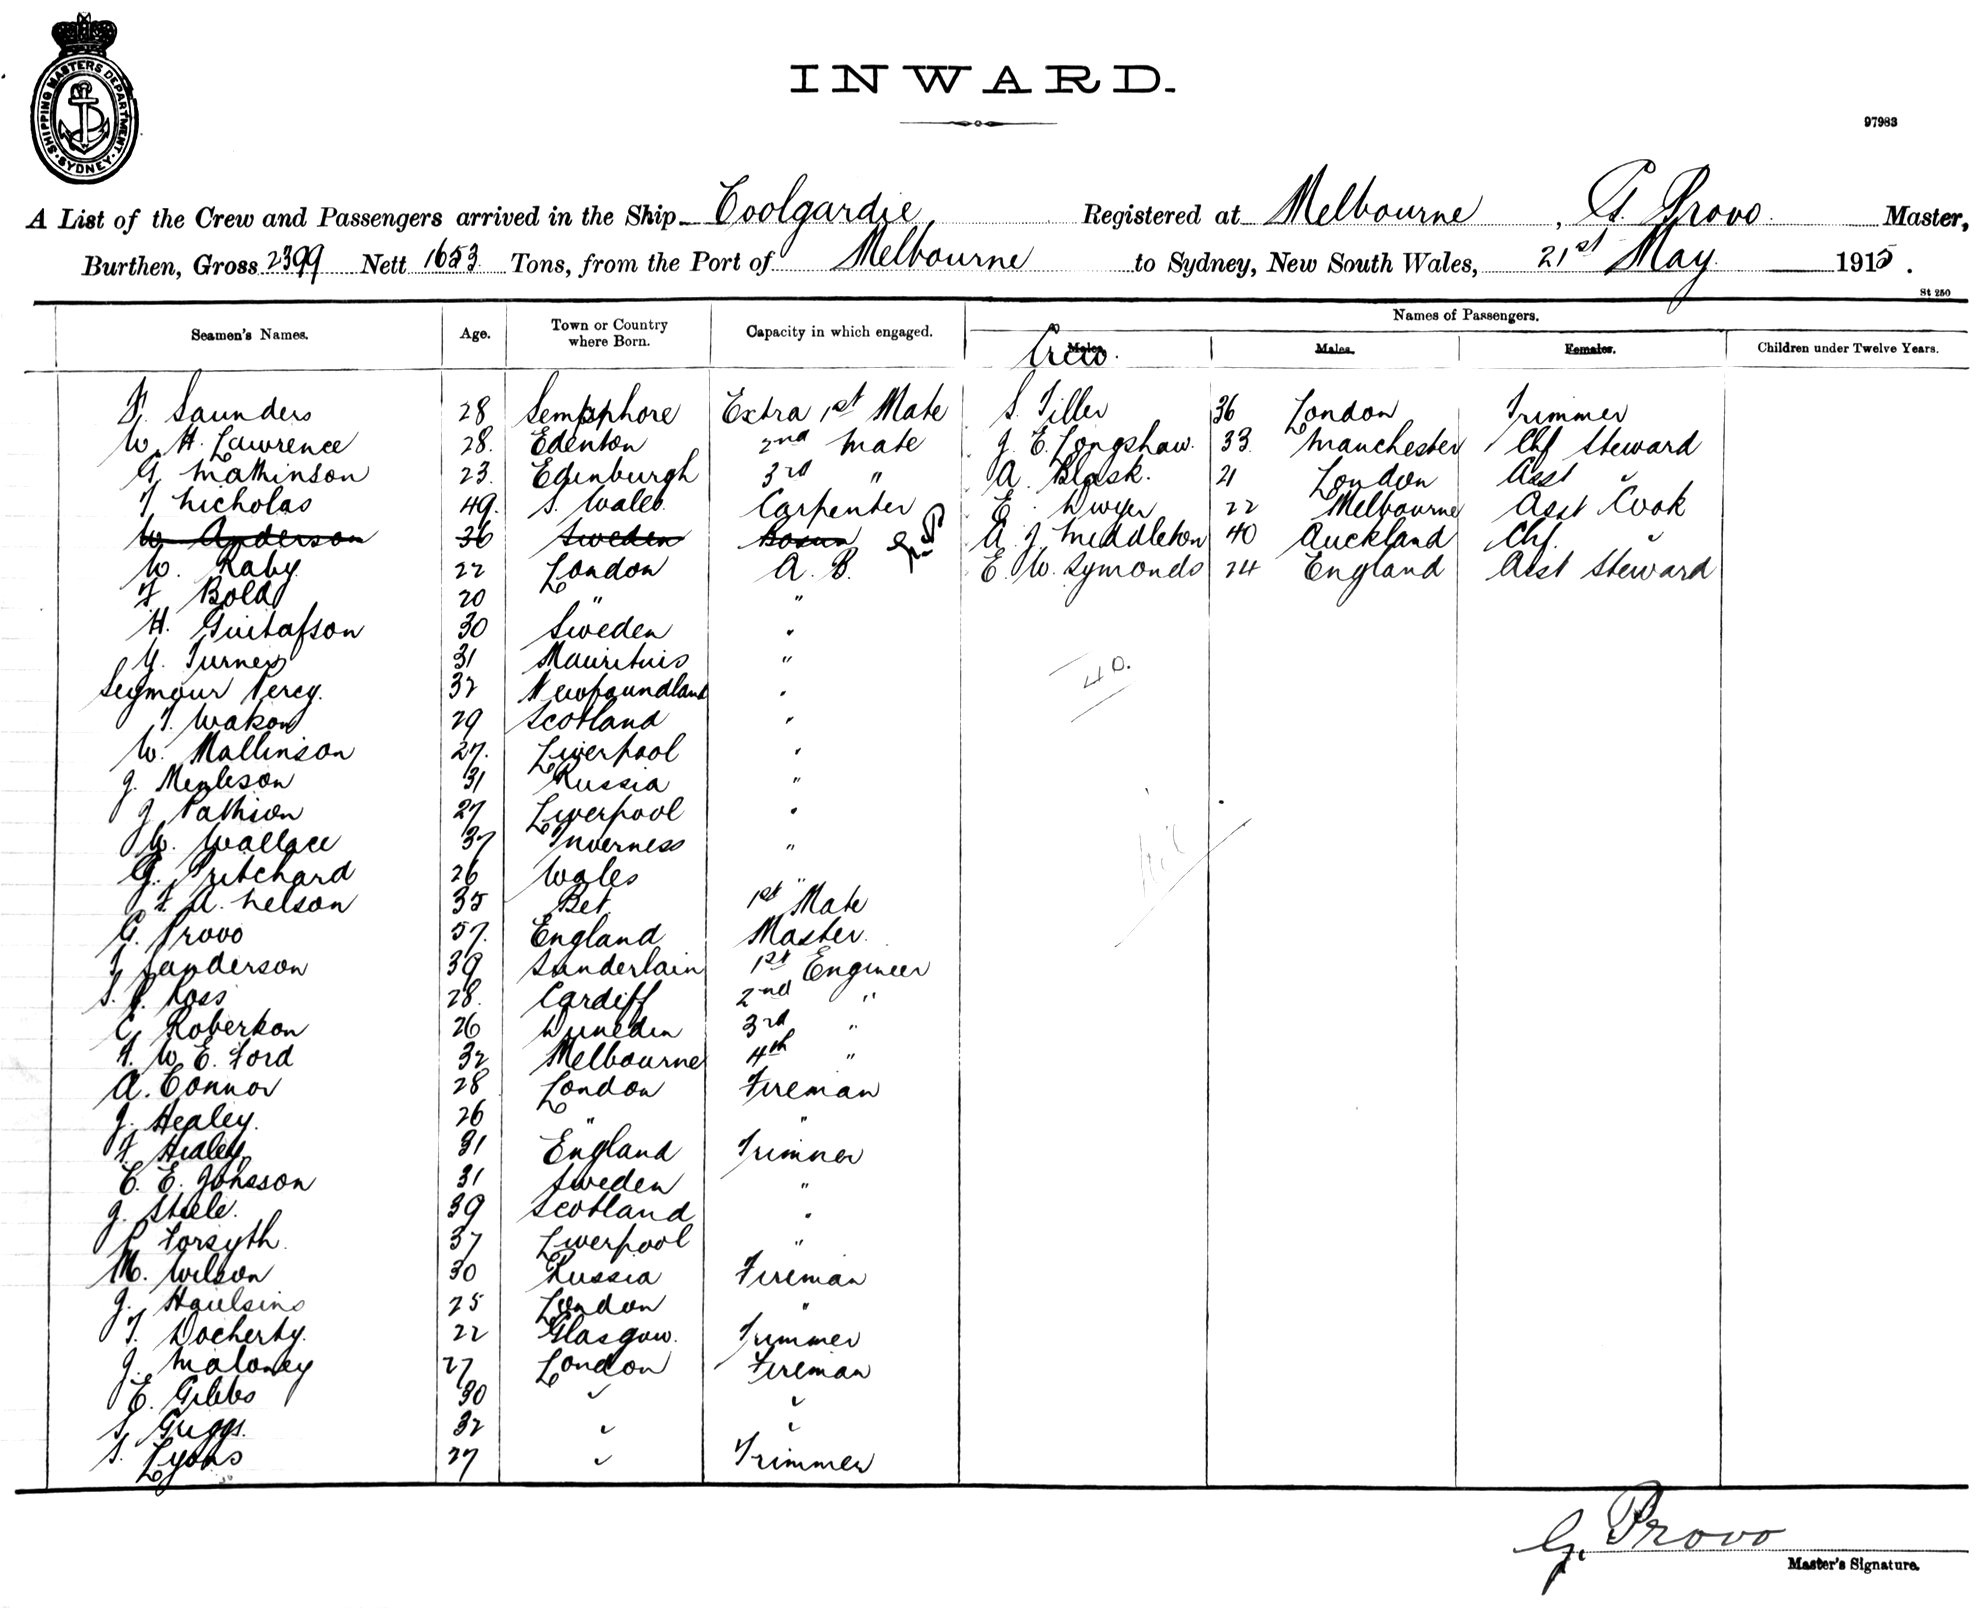 SHIPPING MASTERS DEPARTMENT
SYDNEY
INWARD.
97983
A List of the Crew and Passengers arrived in the Ship Coolgardie Registered at Melbourne, G. Provo Master,
Burthen, Gross 2399 Nett 1653 Tons, from the Port of Melbourne to Sydney, New South Wales, 21st May 1915.
St 250
Seamen's Names. Age. Town or Country where Born. Capacity in which engaged. Names of Passengers.
Crew. Males. Males. Females. Children under Twelve Years.
F. Saunders 28 Semaphore Extra 1st Mate S. Tiller 36 London Trimmer
W. H. Lawrence 28. Edenton 2nd Mate J. E. Longshaw. 33 Manchester Chf Steward
G. Mathinson 23. Edinburgh 3rd " A. Black. 21 London Asst "
T Nicholas 49. S. Wales. Carpenter E. Dwyer 22 Melbourne Asst Cook
W Anderson 36 Sweden Bosun A. J. Middleton 40 Auckland Chf. "
W. Raby 22 London A. B. E. W. Symonds 24 England Asst Steward
F Bold 20 " "
H. Gustafson 30 Sweden "
Y. Turner 31 Mauritius "
Seymour Percy. 32 Newfoundland "
40.
T. Watson 29 Scotland "
W. Mallinson 27. Liverpool "
J. 31 Russia "
J Pattison 27 Liverpool "
W. Wallace 37 Inverness "
nil
G. Pritchard 26 Wales "
F A. Nelson 35 1st Mate
G. Provo 57. England Master.
Sanderson 39 Sunderlain 1st Engineer
S. Ross 28. Cardiff 2nd "
C. Robertson 26 Dunedin 3rd "
F. W. E. Ford 32 Melbourne 4th "
A. Connor 28 London Fireman
J. Healey. 26 " "
F Healey 31 England Trimmer
C. E. Johnsson 31 Sweden "
J. Steele. 39 Scotland "
Forsyth. 37 Liverpool "
M. Wilson 30 Russia Fireman
J. 25 London "
T. Docherty. 22 Glasgow. Trimmer
J. Maloney 27 London Fireman
E. Gibbs 30 " "
Griggs. 32 " "
S. Lyons 27 " Trimmer
G. Provo
Master's Signature.